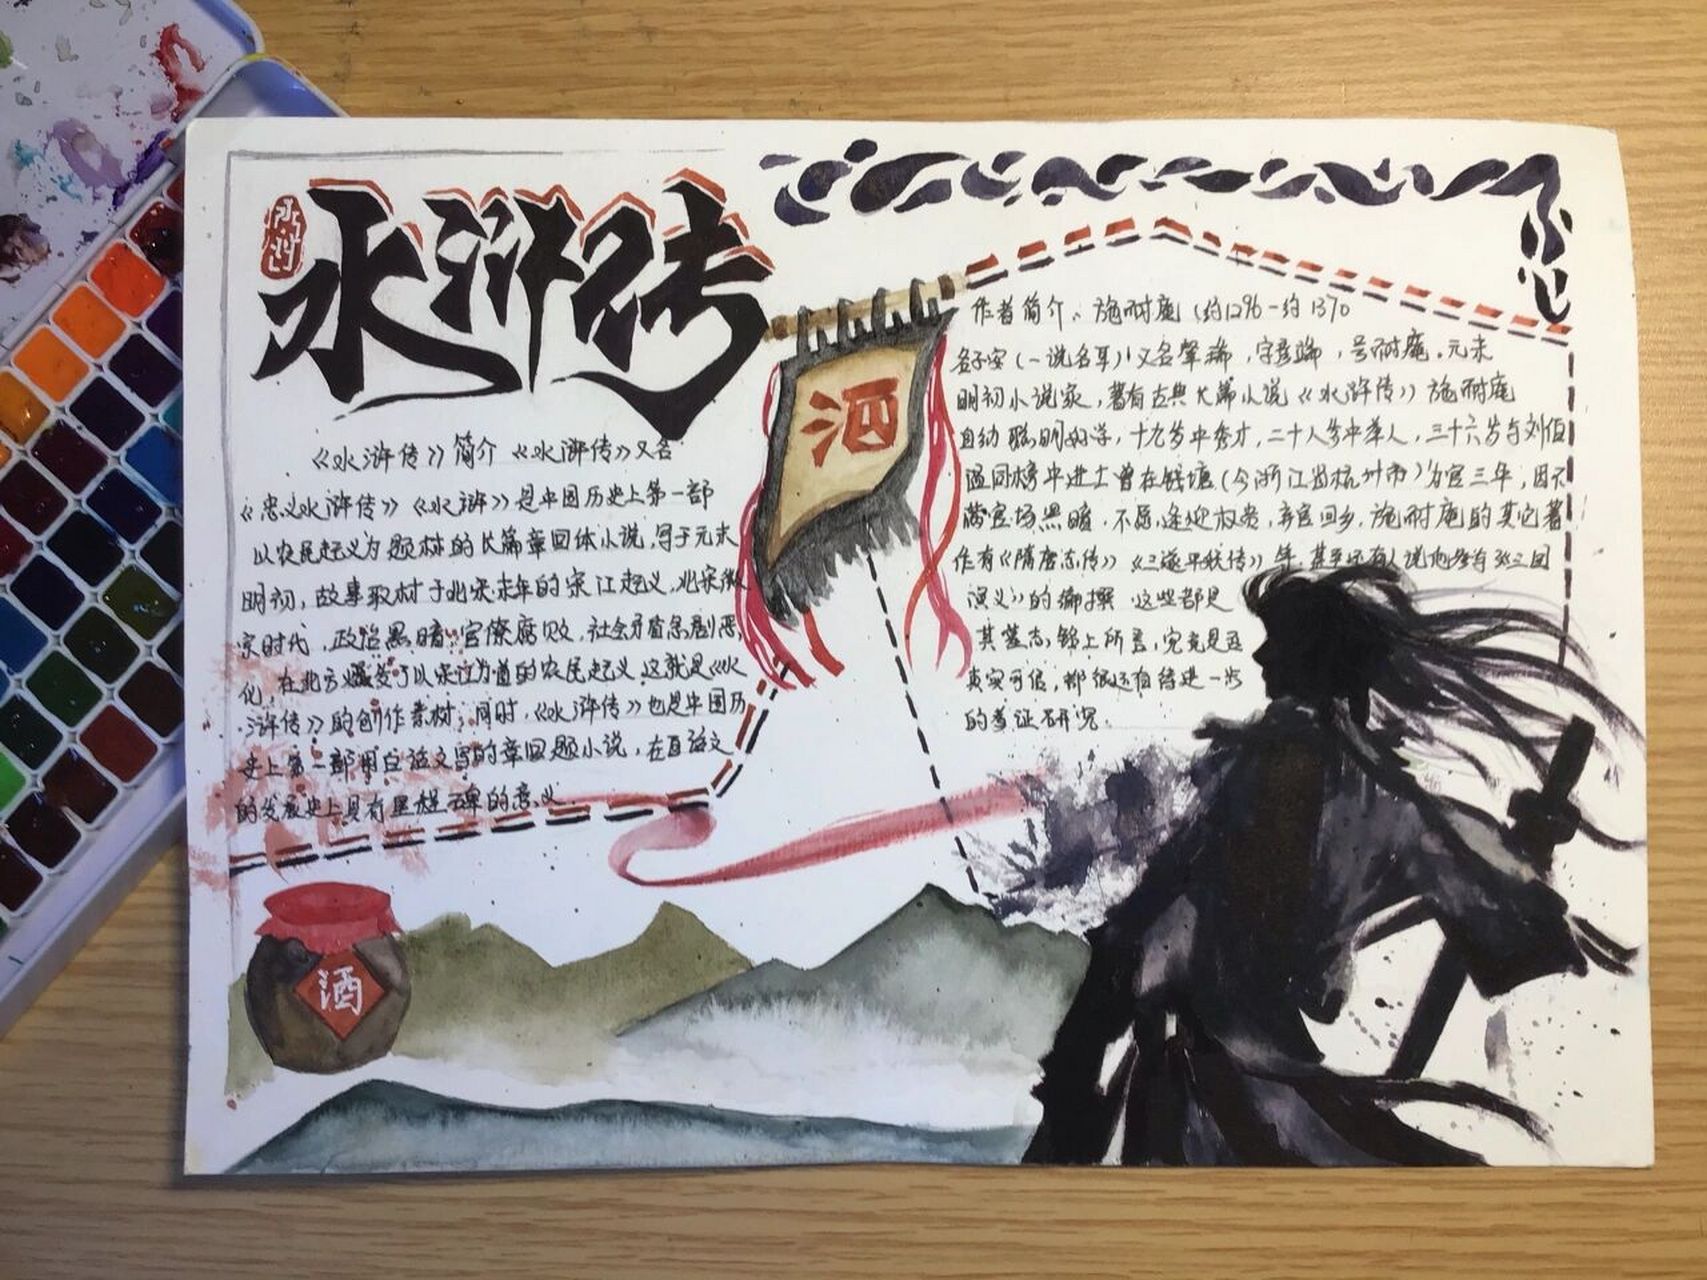 水浒
水浒传
酒
《水浒传》简介 《水浒传》又名
《忠义水浒传》《水浒》是中国历史上第一部
以农民起义为题材的长篇章回体小说,写于元末
明初,故事取材于北宋末年的宋江起义,北宋徽
宗时代,政治黑暗,官僚腐败,社会矛盾急剧恶
化,在北方爆发了以宋江为首的农民起义,这就是《水
浒传》的创作素材;同时,《水浒传》也是中国历
史上第一部用白话文写的章回题小说,在白话文
的发展史上具有里程碑的意义.
作者简介:施耐庵(约1296-约1370
名子安(一说名耳)又名肇瑞,字彦端,号耐庵.元末
明初小说家,著有古典长篇小说《水浒传》施耐庵
自幼聪明好学,十九岁中秀才,二十八岁中举人,三十六岁与刘伯
温同榜中进士曾在钱塘(今浙江省杭州市)为官三年,因不
满官场黑暗,不愿逢迎权贵,弃官回乡,施耐庵的其它著
作有《隋唐志传》《三遂平妖传》等.甚至还有人说他参与
演义》的编撰 这些都是
其墓志铭上所言,究竟是否
真实可信,都很还有待进一步
的考证研究.
酒